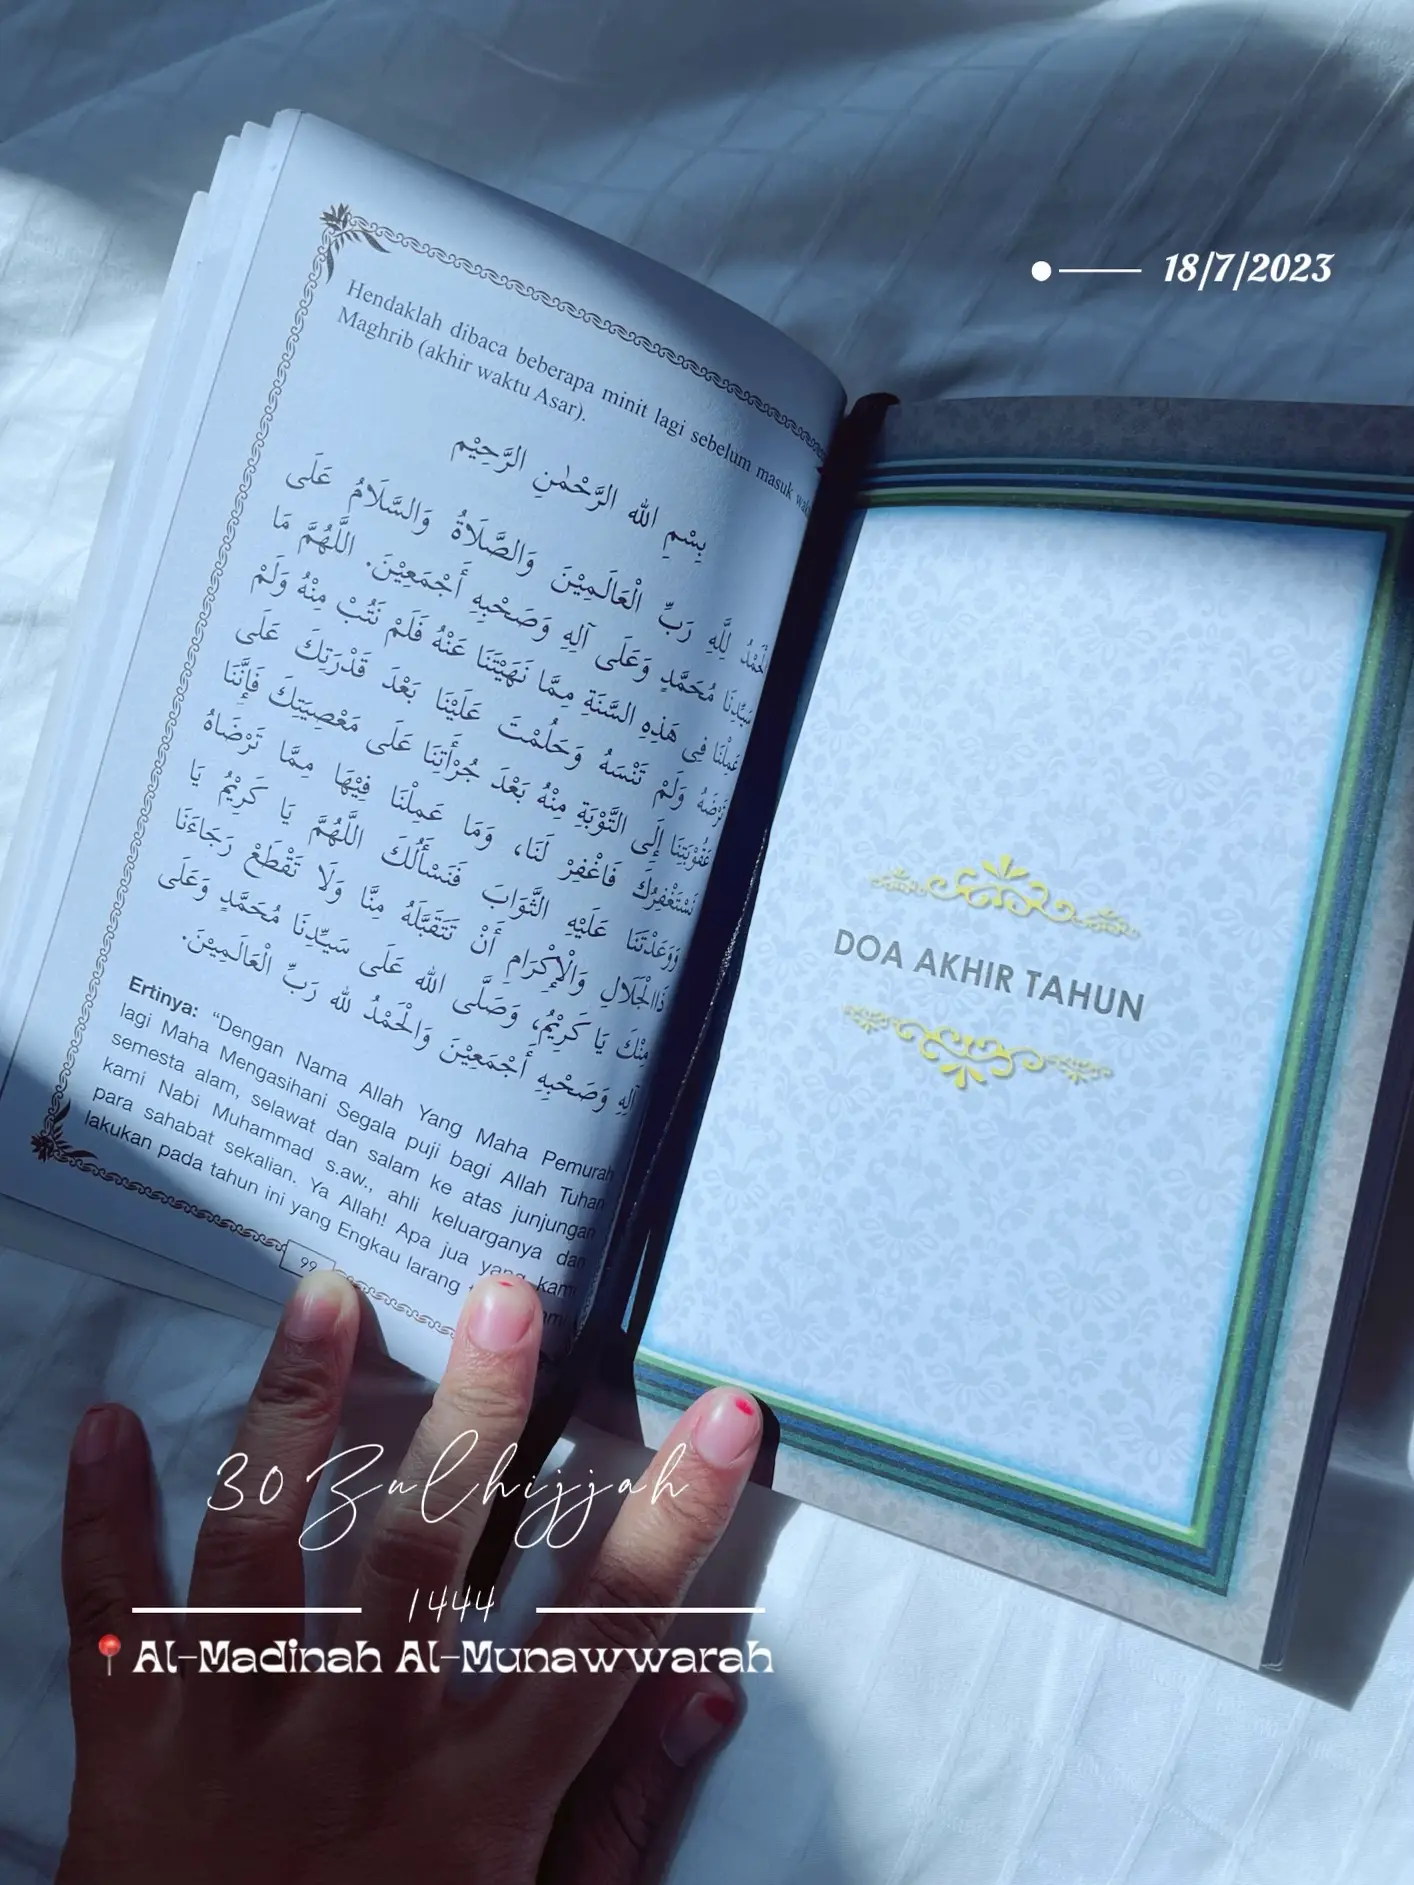 18/7/2023
Hendaklah dibaca beberapa minit lagi sebelum masuk
Maghrib (akhir waktu Asar).
بِسْمِ اللهِ الرَّحْمٰنِ الرَّحِيْمِ
الْحَمْدُ لِلَّهِ رَبِّ الْعَالَمِيْنَ وَالصَّلَاةُ وَالسَّلَامُ عَلَى
سَيِّدِنَا مُحَمَّدٍ وَعَلَى آلِهِ وَصَحْبِهِ أَجْمَعِيْنَ. اللَّهُمَّ مَا
عَمِلْنَا فِي هَذِهِ السَّنَةِ مِمَّا نَهَيْتَنَا عَنْهُ فَلَمْ نَتُبْ مِنْهُ وَلَمْ
تَرْضَهُ وَلَمْ تَنْسَهُ وَحَلُمْتَ عَلَيْنَا بَعْدَ قُدْرَتِكَ عَلَى
عُقُوْبَتِنَا إِلَى التَّوْبَةِ مِنْهُ بَعْدَ جُرْأَتِنَا عَلَى مَعْصِيَتِكَ فَإِنَّنَا
نَسْتَغْفِرُكَ فَاغْفِرْ لَنَا، وَمَا عَمِلْنَا فِيْهَا مِمَّا تَرْضَاهُ
وَوَعَدْتَنَا عَلَيْهِ الثَّوَابَ فَنَسْأَلُكَ اللَّهُمَّ يَا كَرِيْمُ يَا
ذَاالْجَلَالِ وَالْإِكْرَامِ أَنْ تَتَقَبَّلَهُ مِنَّا وَلَا تَقْطَعْ رَجَاءَنَا
مِنْكَ يَا كَرِيْمُ، وَصَلَّى اللهُ عَلَى سَيِّدِنَا مُحَمَّدٍ وَعَلَى
آلِهِ وَصَحْبِهِ أَجْمَعِيْنَ وَالْحَمْدُ لله رَبِّ الْعَالَمِيْنَ.
Ertinya: “Dengan Nama Allah Yang Maha Pemurah
lagi Maha Mengasihani Segala puji bagi Allah Tuhan
semesta alam, selawat dan salam ke atas junjungan
kami Nabi Muhammad s.aw., ahli keluarganya dan
para sahabat sekalian. Ya Allah! Apa jua yang kami
lakukan pada tahun ini yang Engkau larang
99
DOA AKHIR TAHUN
30 Zulhijjah
1444
Al-Madinah Al-Munawwarah